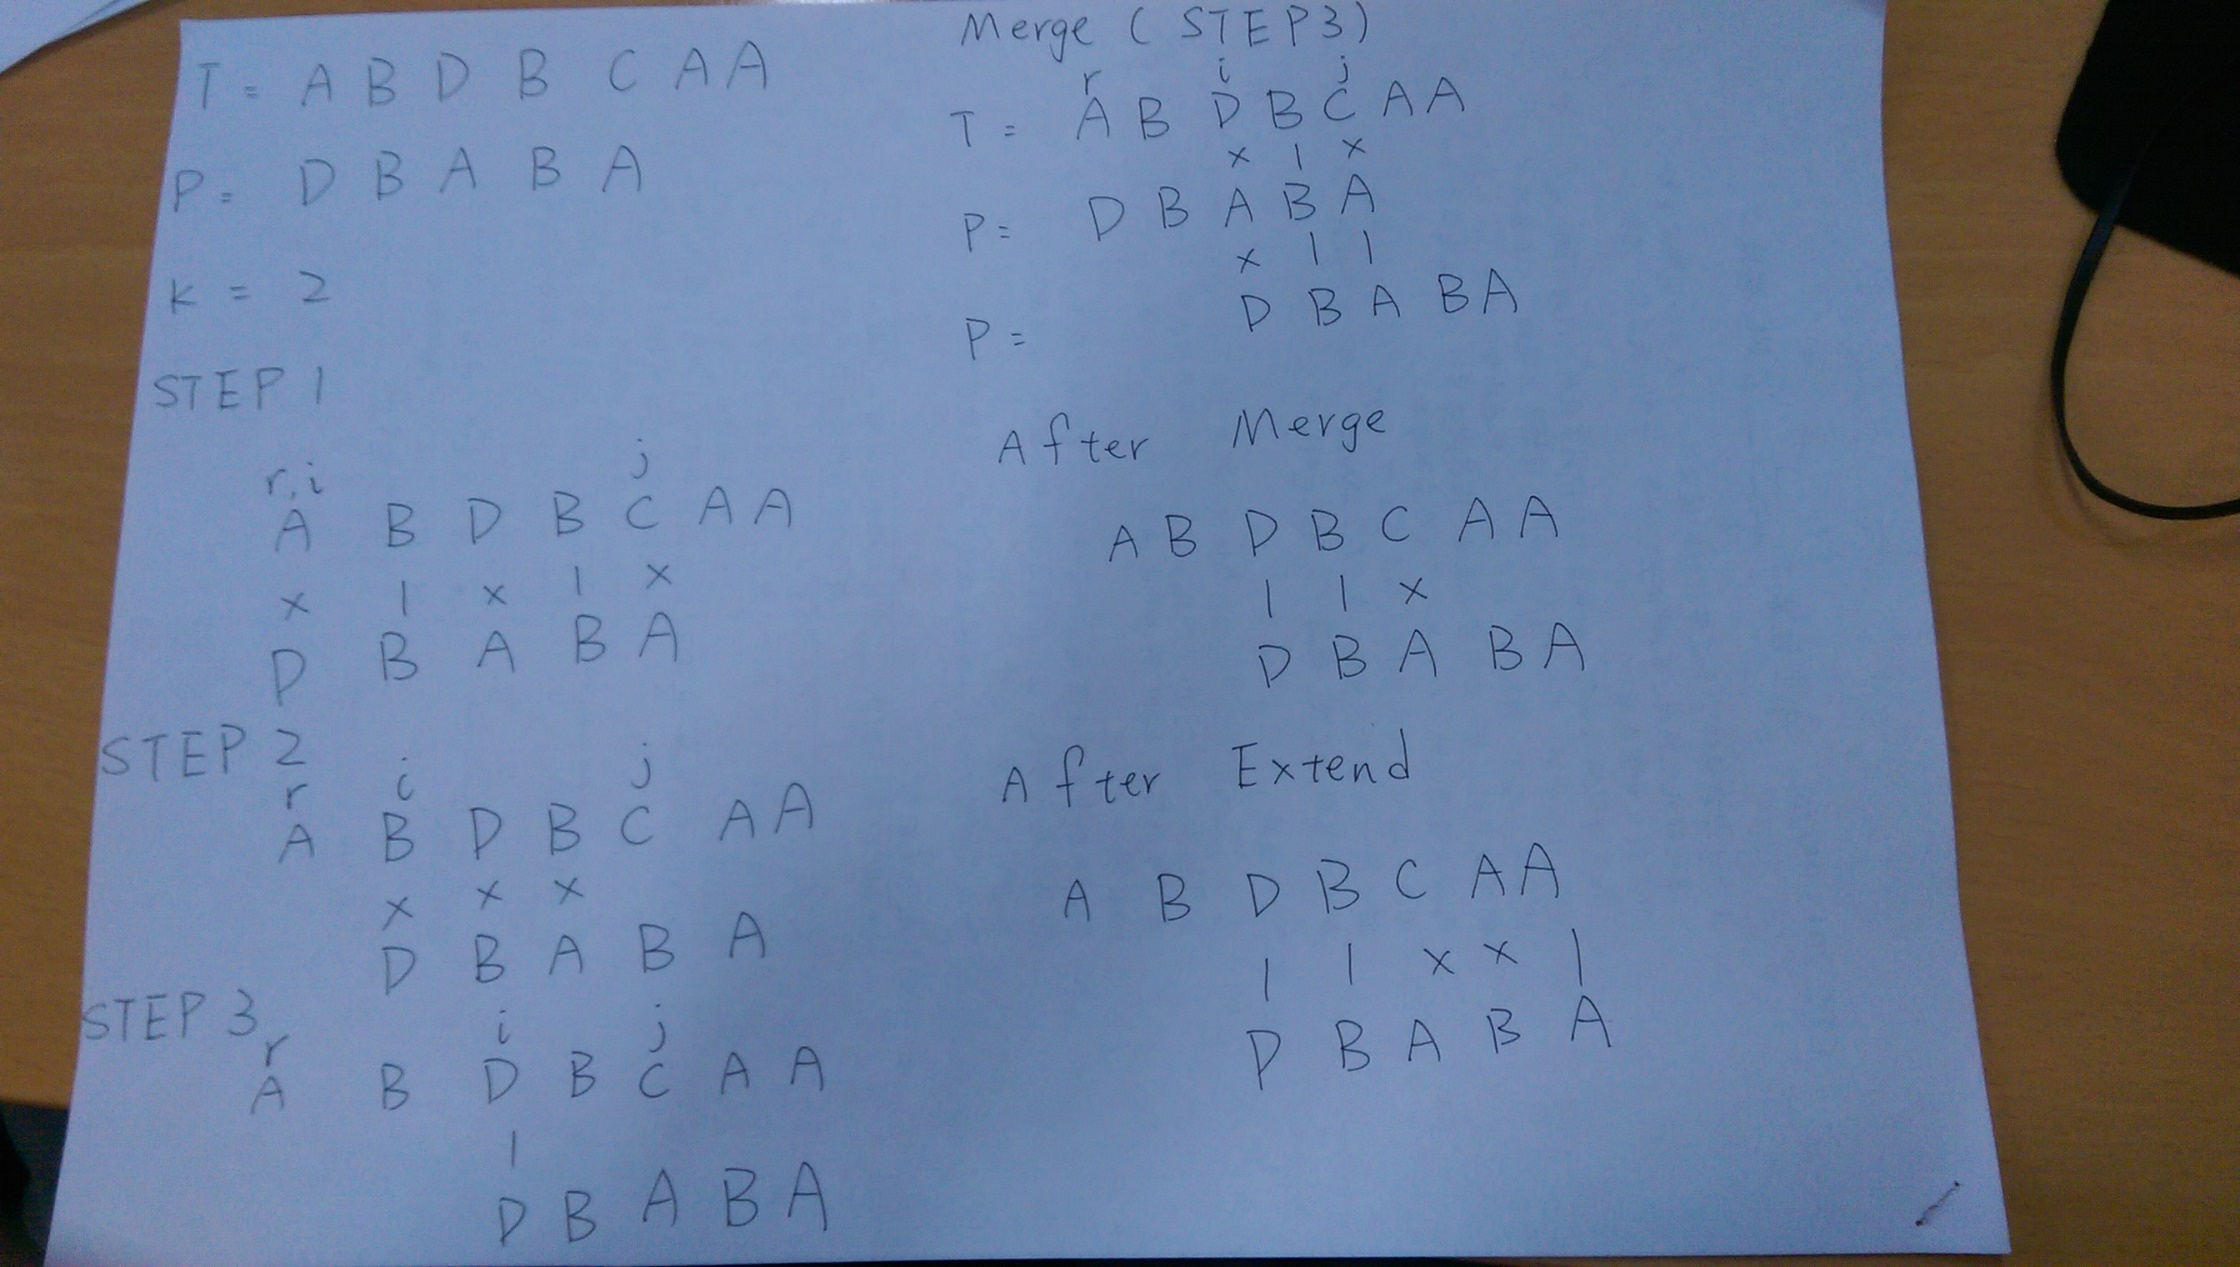 T = A B D B C A A
P = D B A B A
K = 2
STEP 1
r, i j
A B D B C A A
x | x | x
D B A B A
STEP 2
r i j
A B D B C A A
x x x
D B A B A
STEP 3
r i j
A B D B C A A
|
D B A B A
Merge ( STEP3 )
r i j
T = A B D B C A A
x | x
P = D B A B A
x | |
P = D B A B A
After Merge
A B D B C A A
| | x
D B A B A
After Extend
A B D B C A A
| | x x |
D B A B A